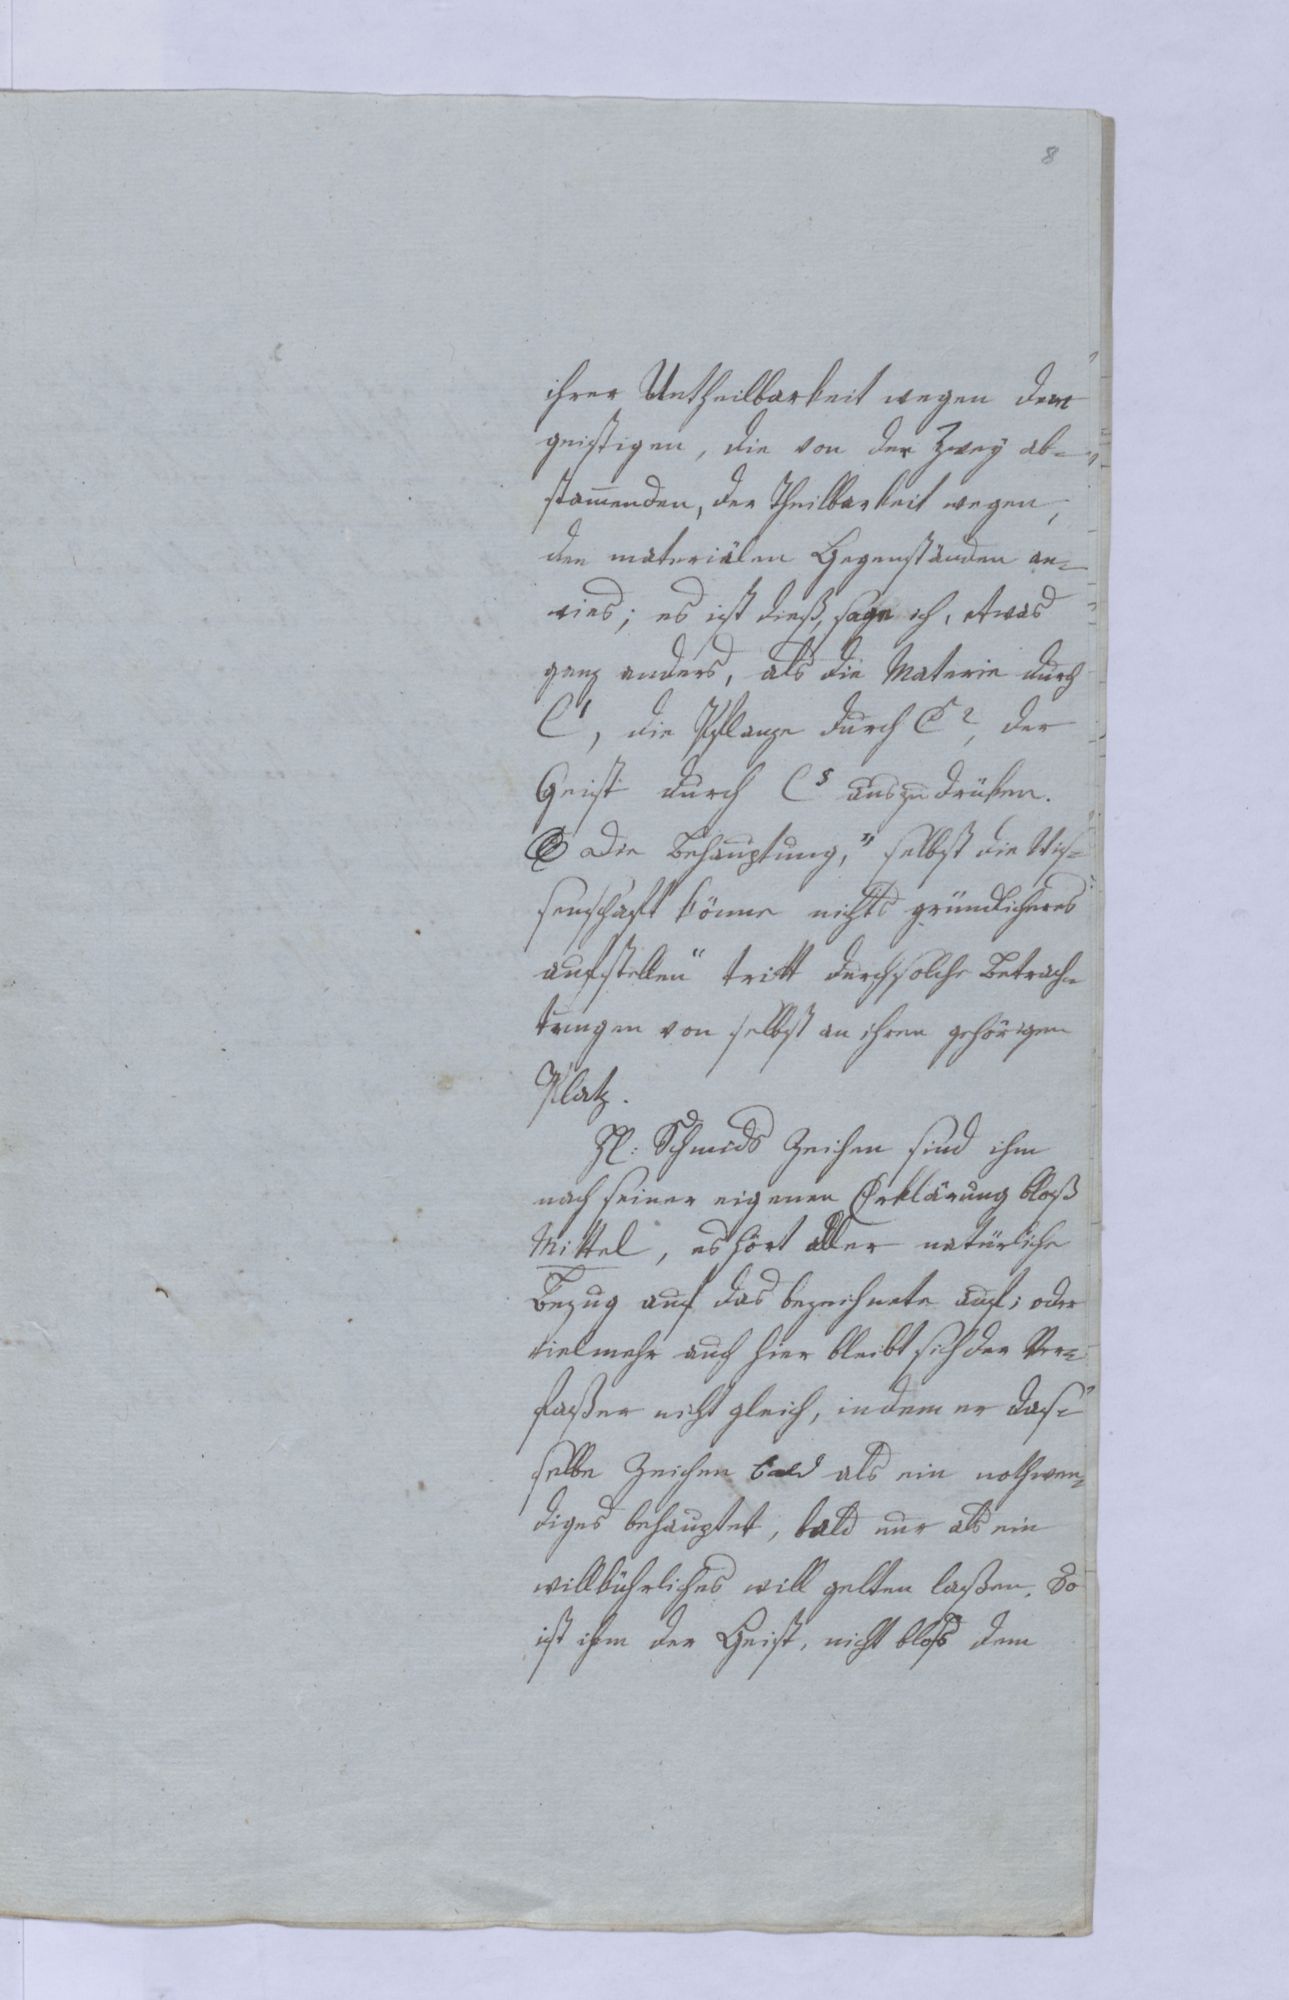 8
ihrer Untheilbarkeit wegen dem
geistigen, die von der Zwey ab-
stam̄enden, der Theilbarkeit wegen,
den materiälen Gegenständen an-
wies; es ist dieß, sage ich, etwas
ganz anders, als die Materie durch
C¹, die Pflanze durch C², der
Geist durch C⁵ auszudrüken.
Die Behauptung, „selbst die Wis-
senschaft könne nichts gründlicheres
aufstellen“ tritt durch solche Betrach-
tungen von selbst an ihren gehörigen
Platz.
H: Schmids Zeichen sind ihm
nach seiner eigenen Erklärung bloß
Mittel, es hört aller natürliche
Bezug auf das bezeichnete auf; oder
vielmehr auch hier bleibt sich der Ver-
faßer nicht gleich, indem er das-
selbe Zeichen bald als ein nothwen-
diges behauptet, bald nur als ein
willkührliches will gelten laßen. So
ist ihm der Geist, nicht bloß dem